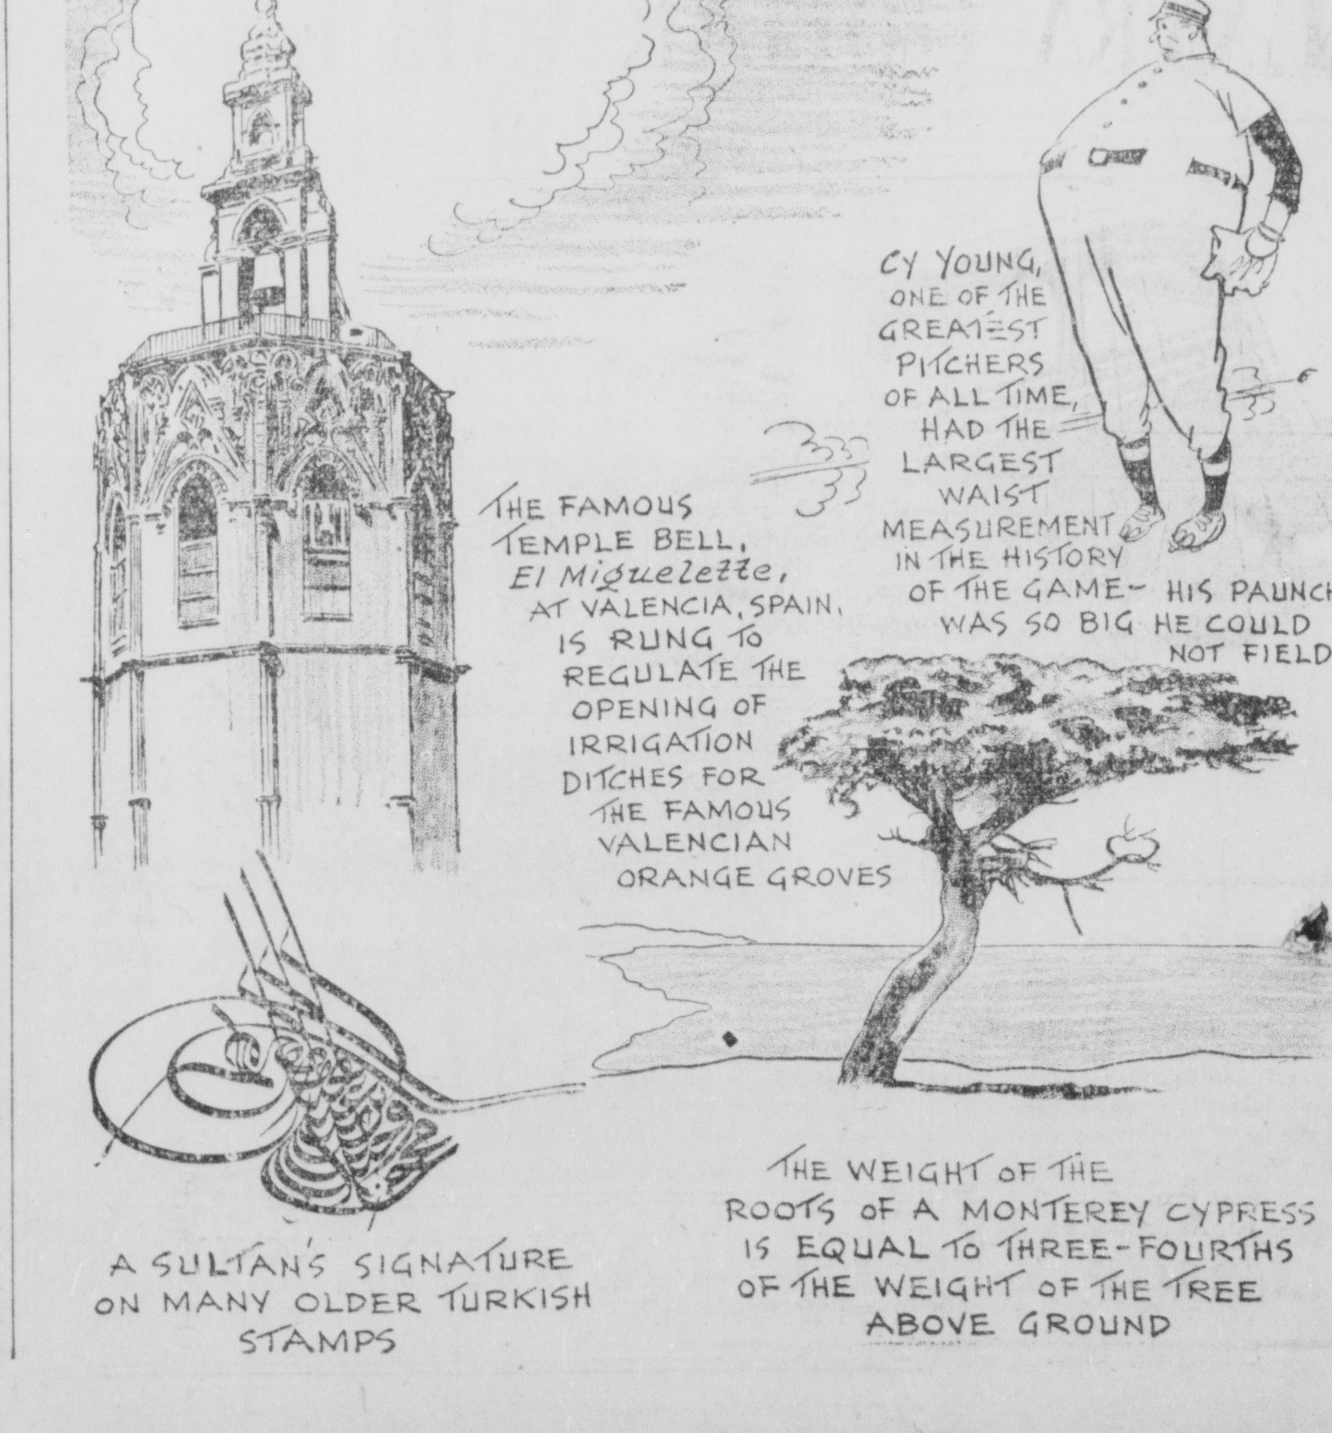 CY YOUNG,
ONE OF THE
GREATEST
PITCHERS
OF ALL TIME,
HAD THE
LARGEST
WAIST
MEASUREMENT
IN THE HISTORY
OF THE GAME- HIS PAUNCH
WAS SO BIG HE COULD
NOT FIELD
THE FAMOUS
TEMPLE BELL,
El Miguelette,
AT VALENCIA, SPAIN,
IS RUNG TO
REGULATE THE
OPENING OF
IRRIGATION
DITCHES FOR
THE FAMOUS
VALENCIAN
ORANGE GROVES
A SULTAN'S SIGNATURE
ON MANY OLDER TURKISH
STAMPS
THE WEIGHT OF THE
ROOTS OF A MONTEREY CYPRESS
IS EQUAL TO THREE-FOURTHS
OF THE WEIGHT OF THE TREE
ABOVE GROUND